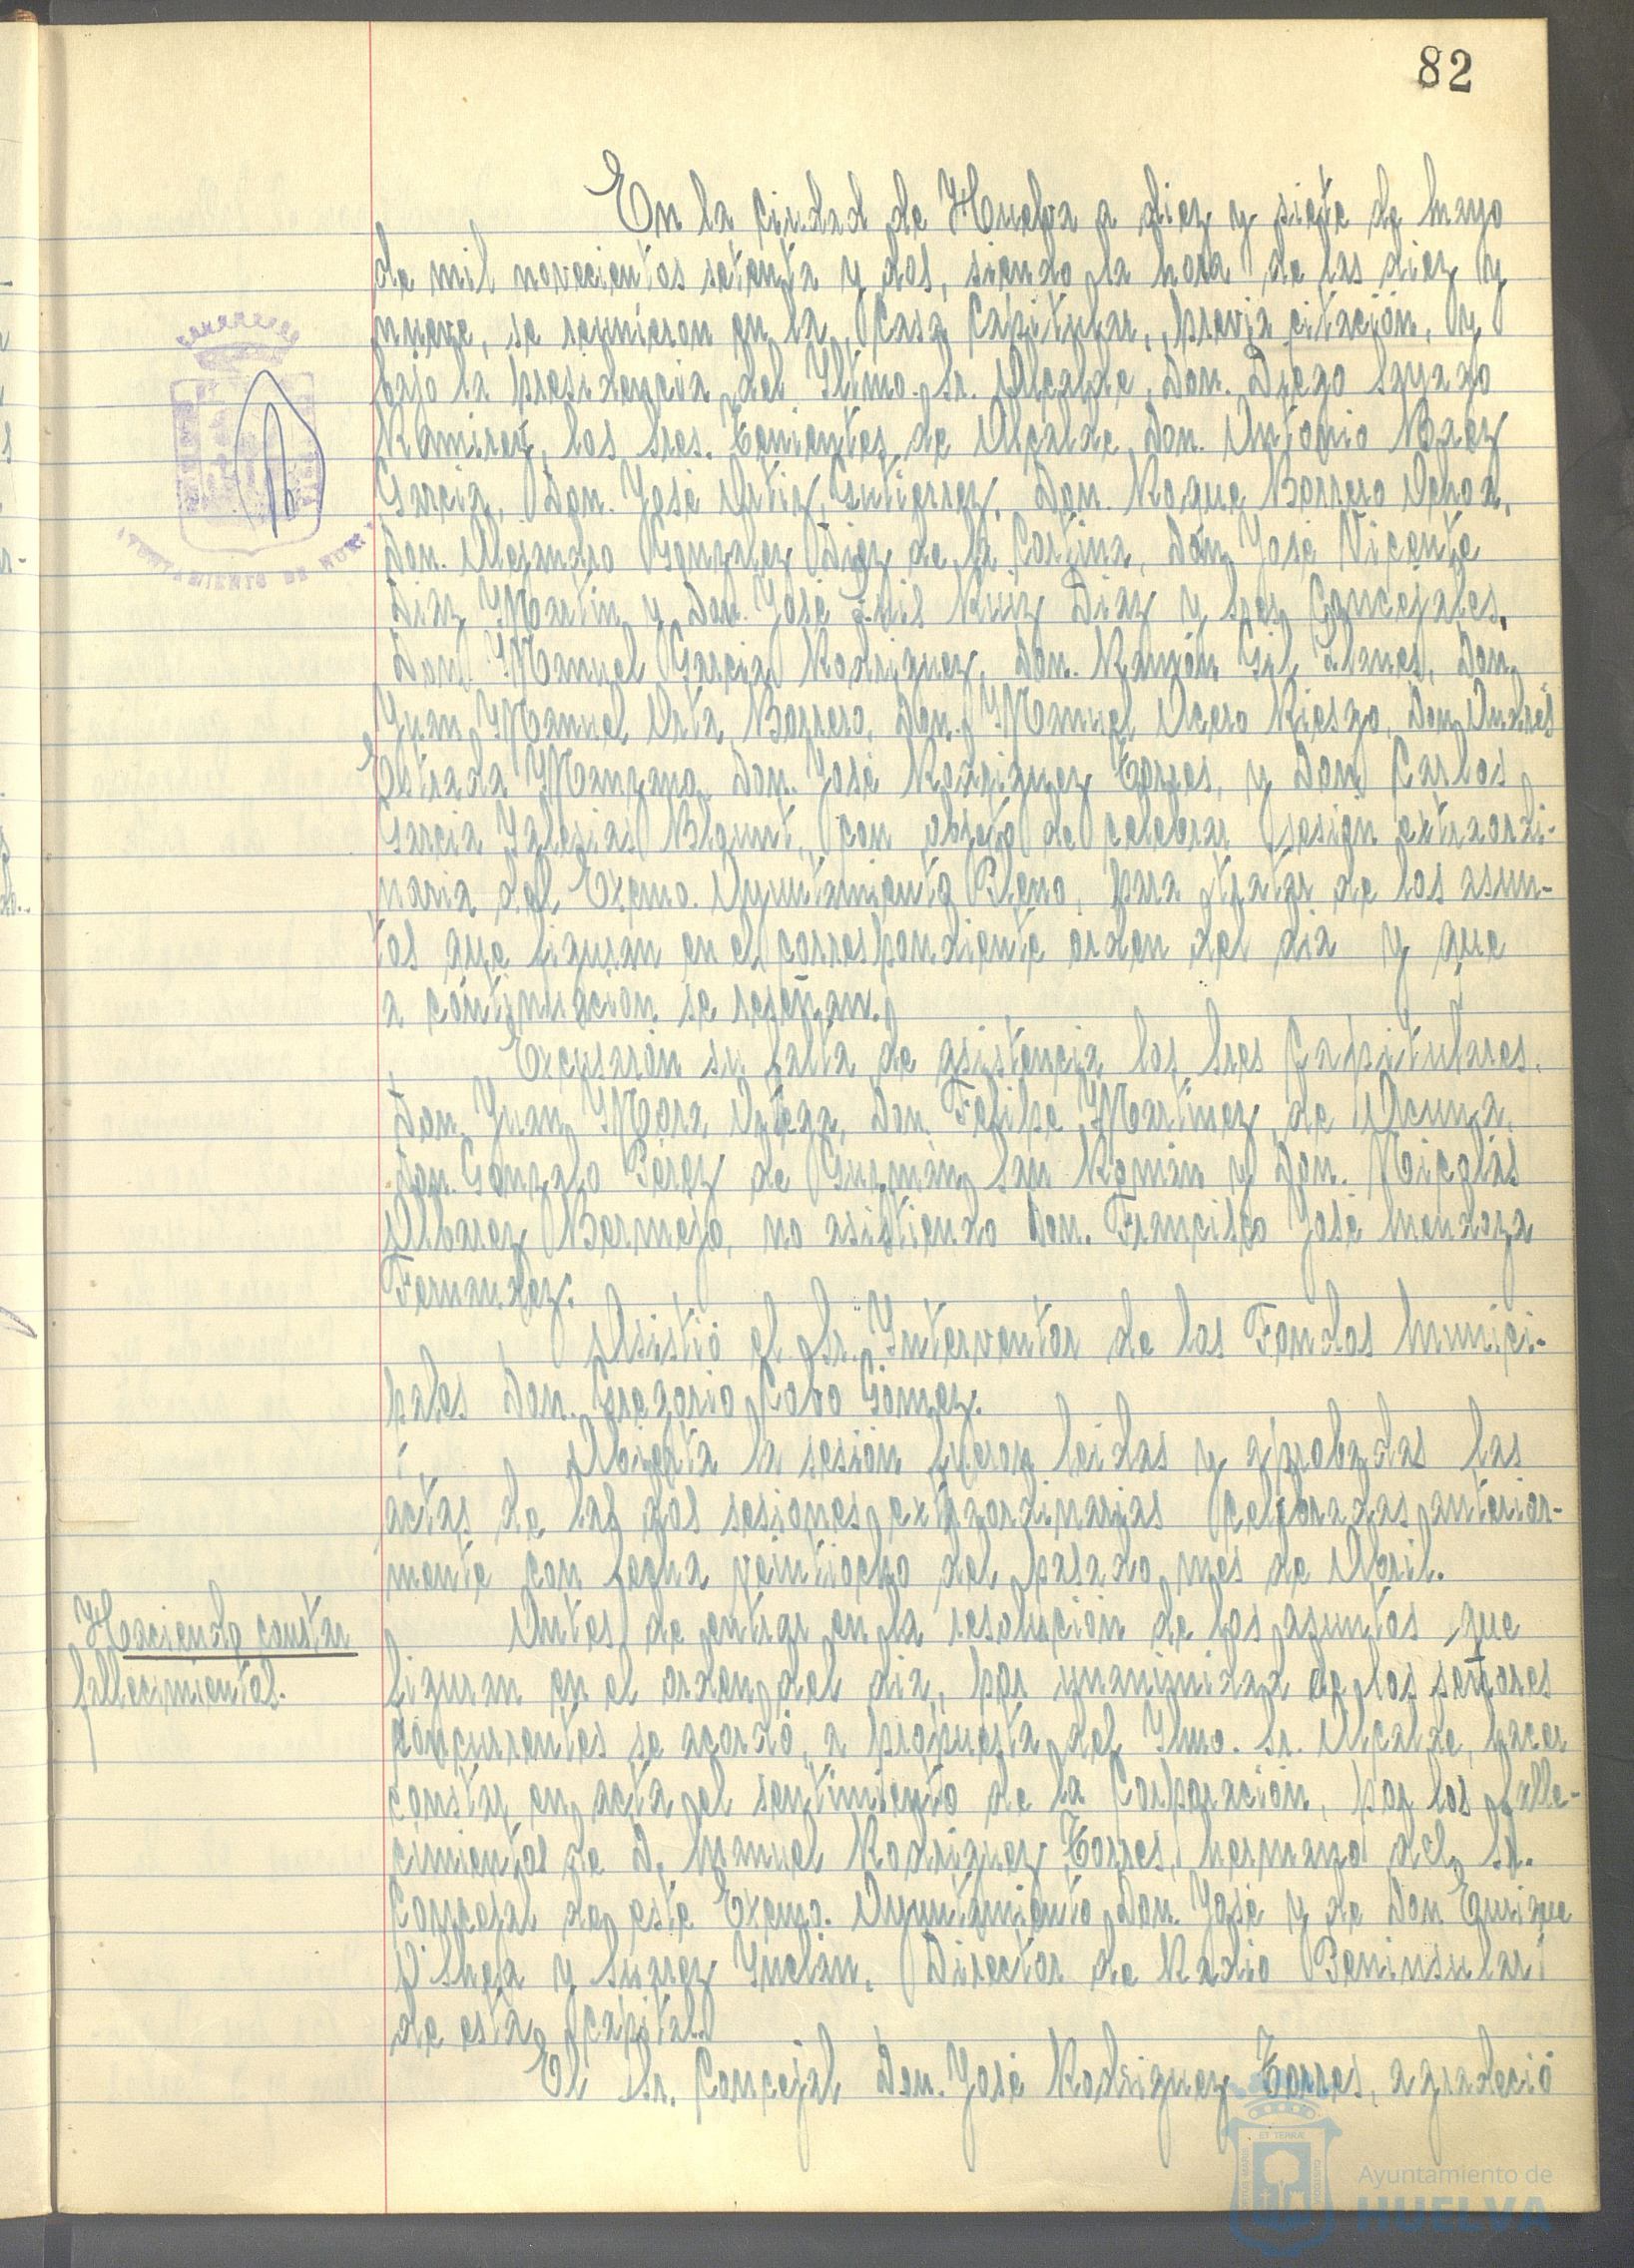 82
En la Ciudad de Huelva a diez y siete de Mayo
de mil novecientos setenta y dos, siendo la hora de las diez y
nueve, se reunieron en la Casa Capitular, previa citación, y
bajo la presidencia del Iltmo. Sr. Alcalde, Don. Diego Sayago
Ramirez, los Sres. Tenientes de Alcalde Don. Antonio Baez
Garcia, Don. José Ortiz Gutierrez, Don. Roque Borrero Ochoa,
Don. Alejandro Gonzalez Diez de la Cortina, Don José Vicente
Diaz Martin y Don. José Luis Ruiz Diaz y Sres Concejales,
Don Manuel Garcia Rodriguez, Don. Ramón Gil Llanes, Don
Juan Manuel Orta Borrero, Don. Manuel Acero Riesgo, Don Andrés
Estrada Manzano, Don. José Rodriguez Torres, y Don Carlos
Garcia Yglesias Blount, con objeto de celebrar sesión extraordi-
naria del Excmo. Ayuntamiento Pleno, para tratar de los asun-
tos que figuran en el correspondiente orden del dia y que
a continuación se reseñan.
Excusarón su falta de asistencia los Sres Capitulares,
Don Juan Mora Ortega, Don Felipe Martinez de Acuña,
Don. Gonzalo Pérez de Guzmán San Román y Don. Nicolás
Alvarez Bermejo, no asistiendo Don. Francisco José Mendoza
Fernandez.
Asistió el Sr. Interventor de los Fondos Munici-
pales Don. Gregorio Cobo Gómez.
Abierta la sesión fueron leidas y aprobadas las
actas de las dos sesiones extraordinarias celebradas anterior-
mente con fecha veintiocho del pasado mes de Abril.
Haciendo constar
fallecimientos.
Antes de entrar en la resolución de los asuntos que
figuran en el orden del dia, por unanimidad de los señores
concurrentes se acordó, a propuesta del Ilmo. Sr. Alcalde, hacer
constar en acta el sentimiento de la Corporación, por los falle-
cimientos de D. Manuel Rodriguez Torres, hermano del Sr.
Concejal de este Excmo. Ayuntamiento Don. José y de Don Enrique
O'Shea y Suarez Inclán, Director de Radio Peninsular
de esta capital.
El Sr. Concejal Don. José Rodriguez Torres, agradeció
Ayuntamiento de
HUELVA